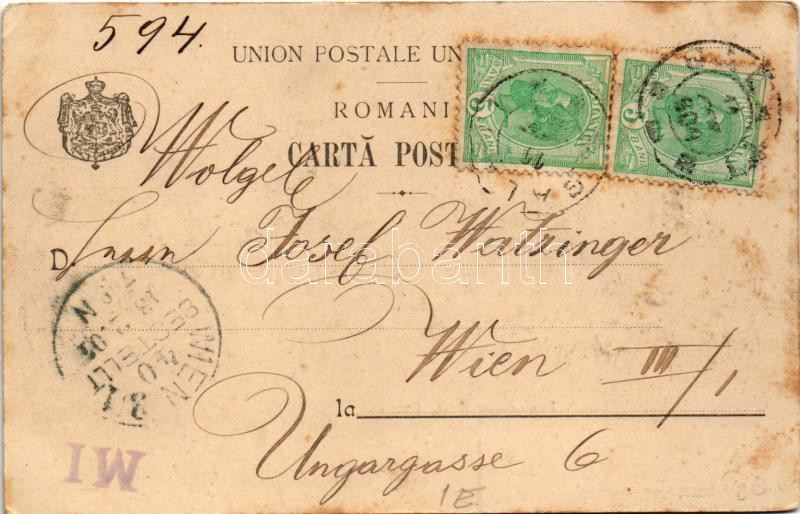 594.
UNION POSTALE UN
ROMANI
CARTĂ POST
5 BANI
5 BANI
GALAȚI
Wolgeb
D Herrn Josef Watzinger
Wien III/1
la
Ungargasse 6
WIEN 3/1
40
BESTELLT
MI
IE
darabanth